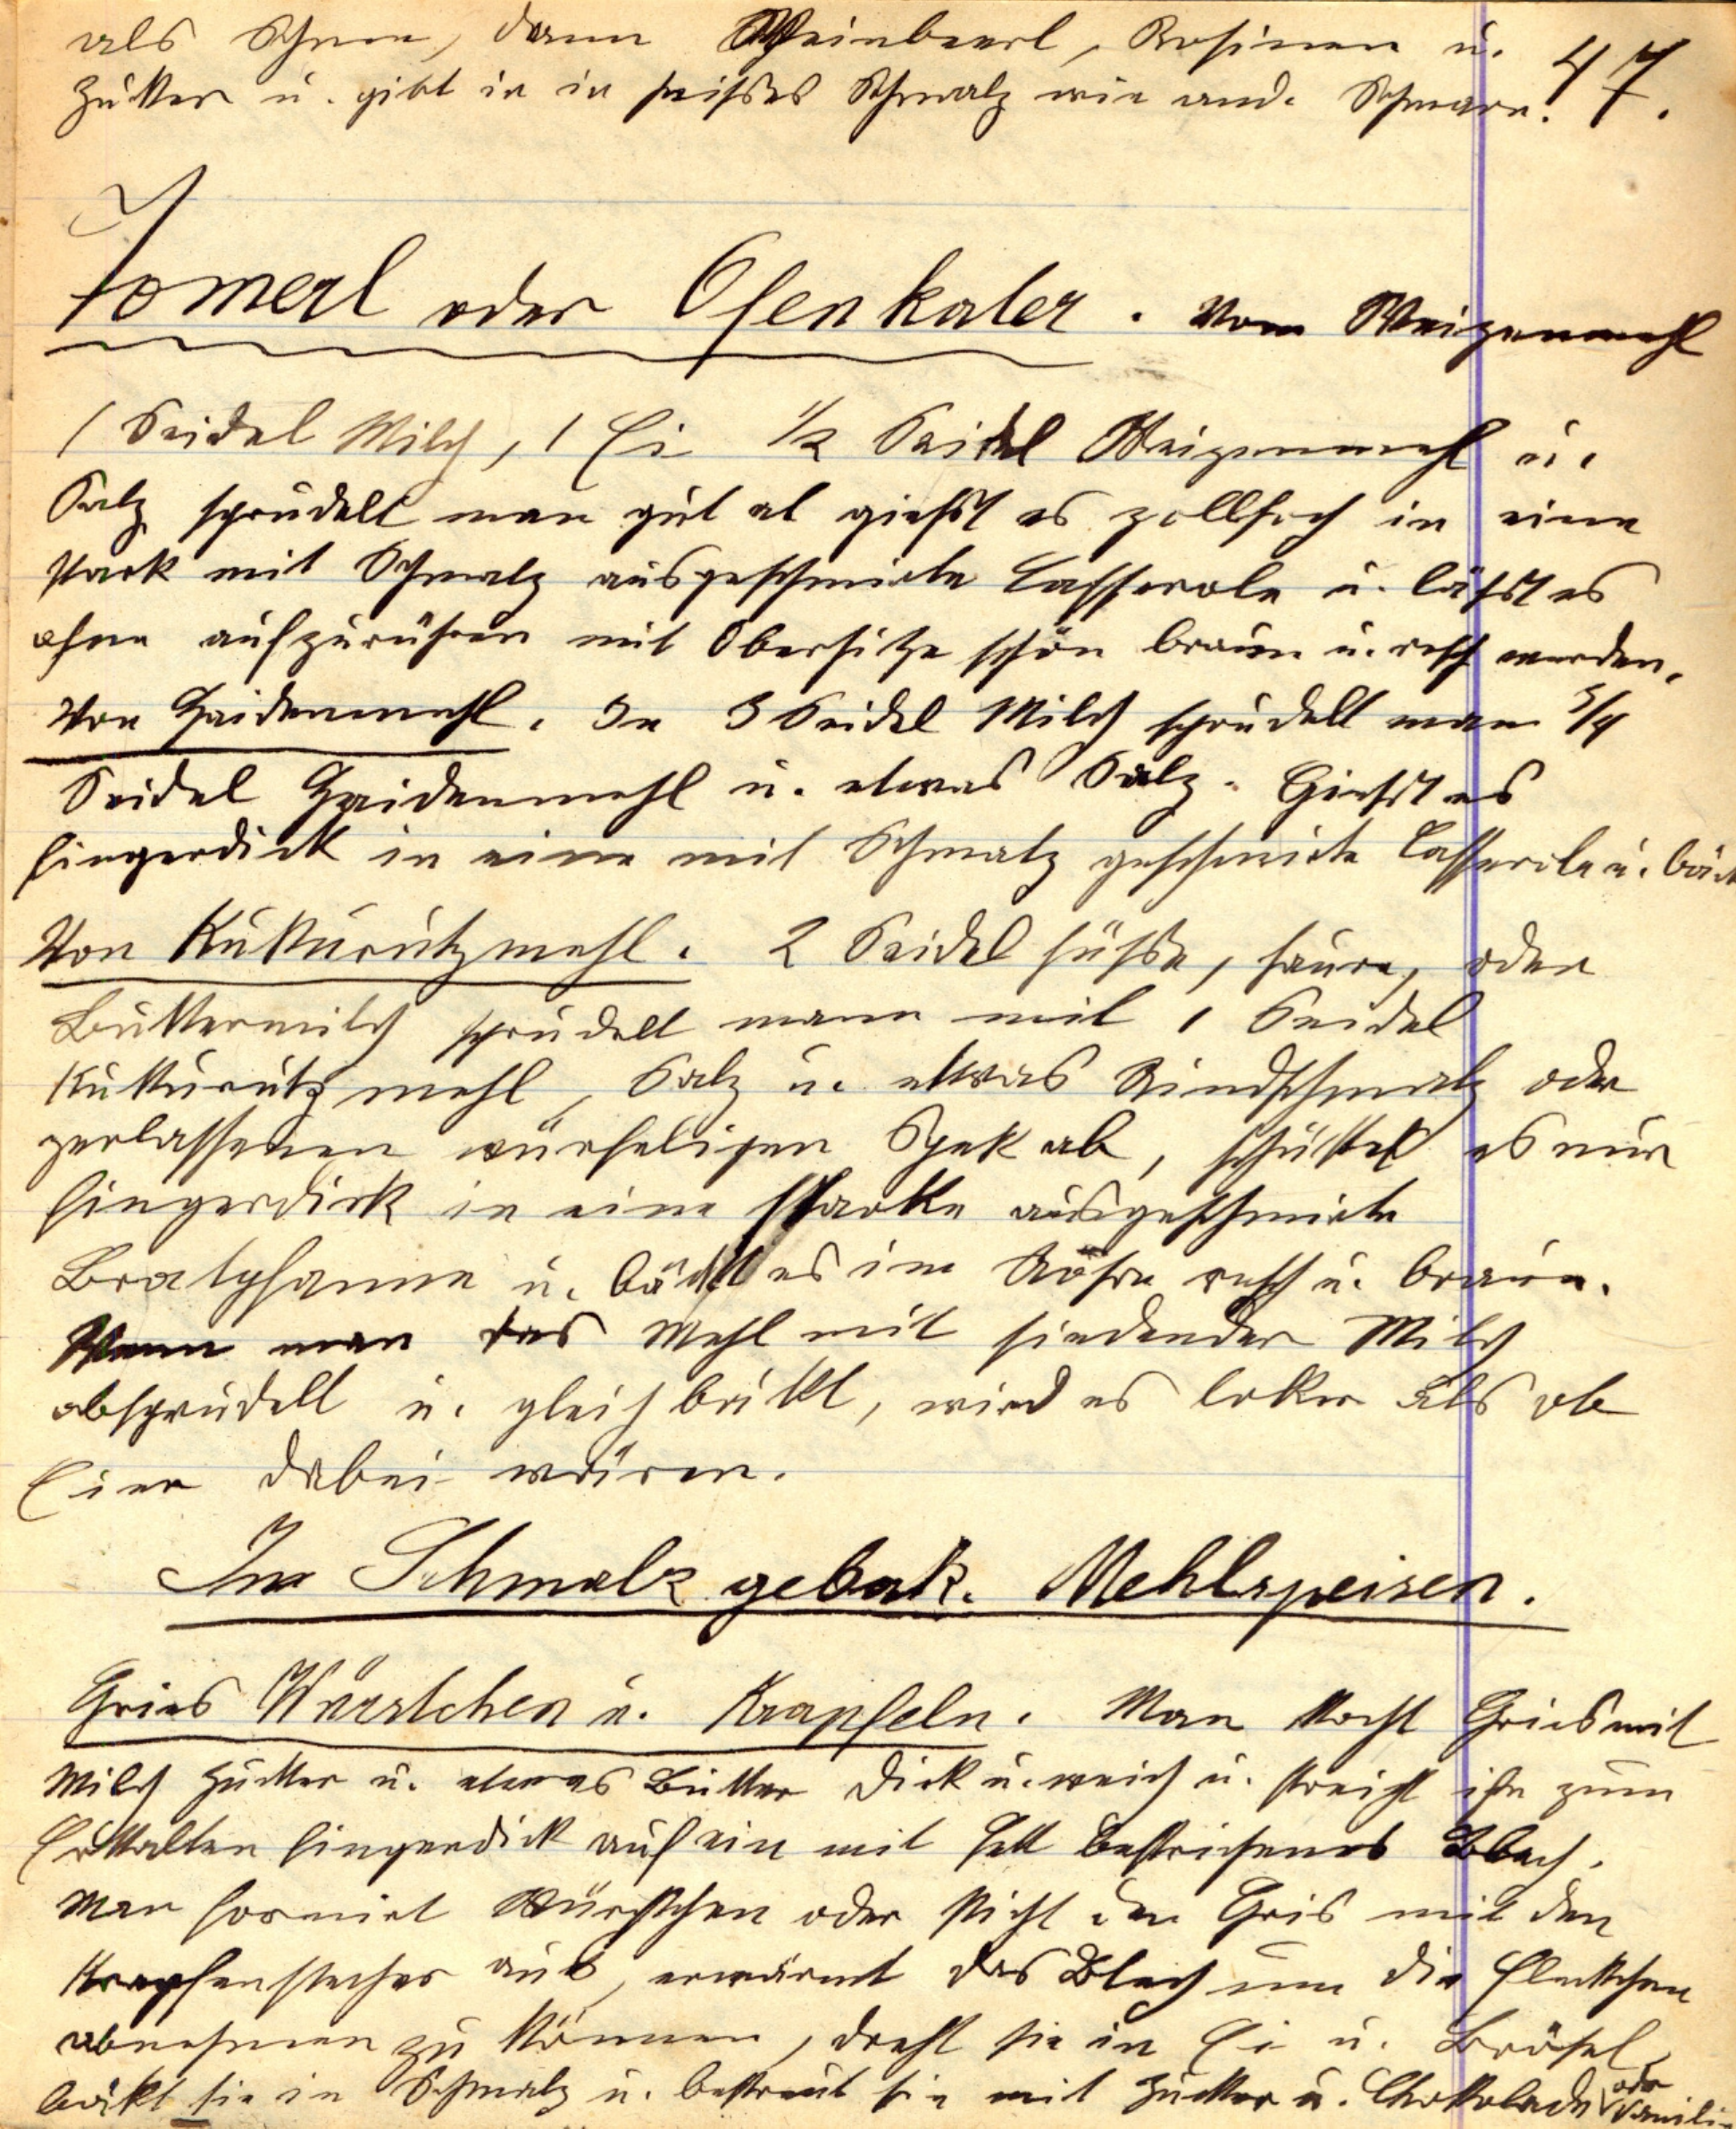 als Schnee, dann Weinbeerl, Rosinen u.
Zukker u. gibt in in heißes Schmalz wie and. Schmarn.
47.
Tomerl oder Ofenkater. Vom Weizenmehl
1 Seidel Milch, 1 Ei ½ Seidel Weizenmehl u.
Salz sprudelt man gut ab gießt es zollhoch in eine
stark mit Schmalz ausgeschmirte Casserole u. läßt es
ohne aufzurühren mit Oberhitze schön braun u. resch werden.
Von Haidenmehl. In 3 Seidel Milch sprudelt man 5/4
Seidel Haidenmehl u. etwas Salz. Gießt es
fingerdick in eine mit Schmalz geschmirte Casserole u. bäck
Von Kukurutzmehl. 2 Seidel süße, saure, oder
Buttermilch sprudelt mann mit 1 Seidel
Kukurutzmehl, Salz u. etwas Rindschmalz oder
zerlassenen würfeligen Spek ab, schüttet es nur
fingerdick in eine starke ausgeschmirte
Bratpfanne u. bäckt es im Röhre resch u. braun.
Wenn man das Mehl mit siedender Milch
absprudelt u. gleich bäkt, wird es loker als ob
Eier dabei wären.
Im Schmalz gebak. Mehlspeisen.
Gries Würstchen u. Krapfeln. Man kocht Gries mit
Milch Zucker u. etwas Butter dick u. weich u. streicht ihn zum
Erkalten fingerdick auf ein mit Fett bestrichenes Blech.
Man formirt Würstchen oder sticht den Gris mit den
Krapfenstecher aus, erwärmt das Blech um die Fleckchen
abnehmen zu können, dreht sie in Ei u. Brösel,
bäkt sie in Schmalz u. bestreut sie mit Zucker u. Chokolade oder Vanili-